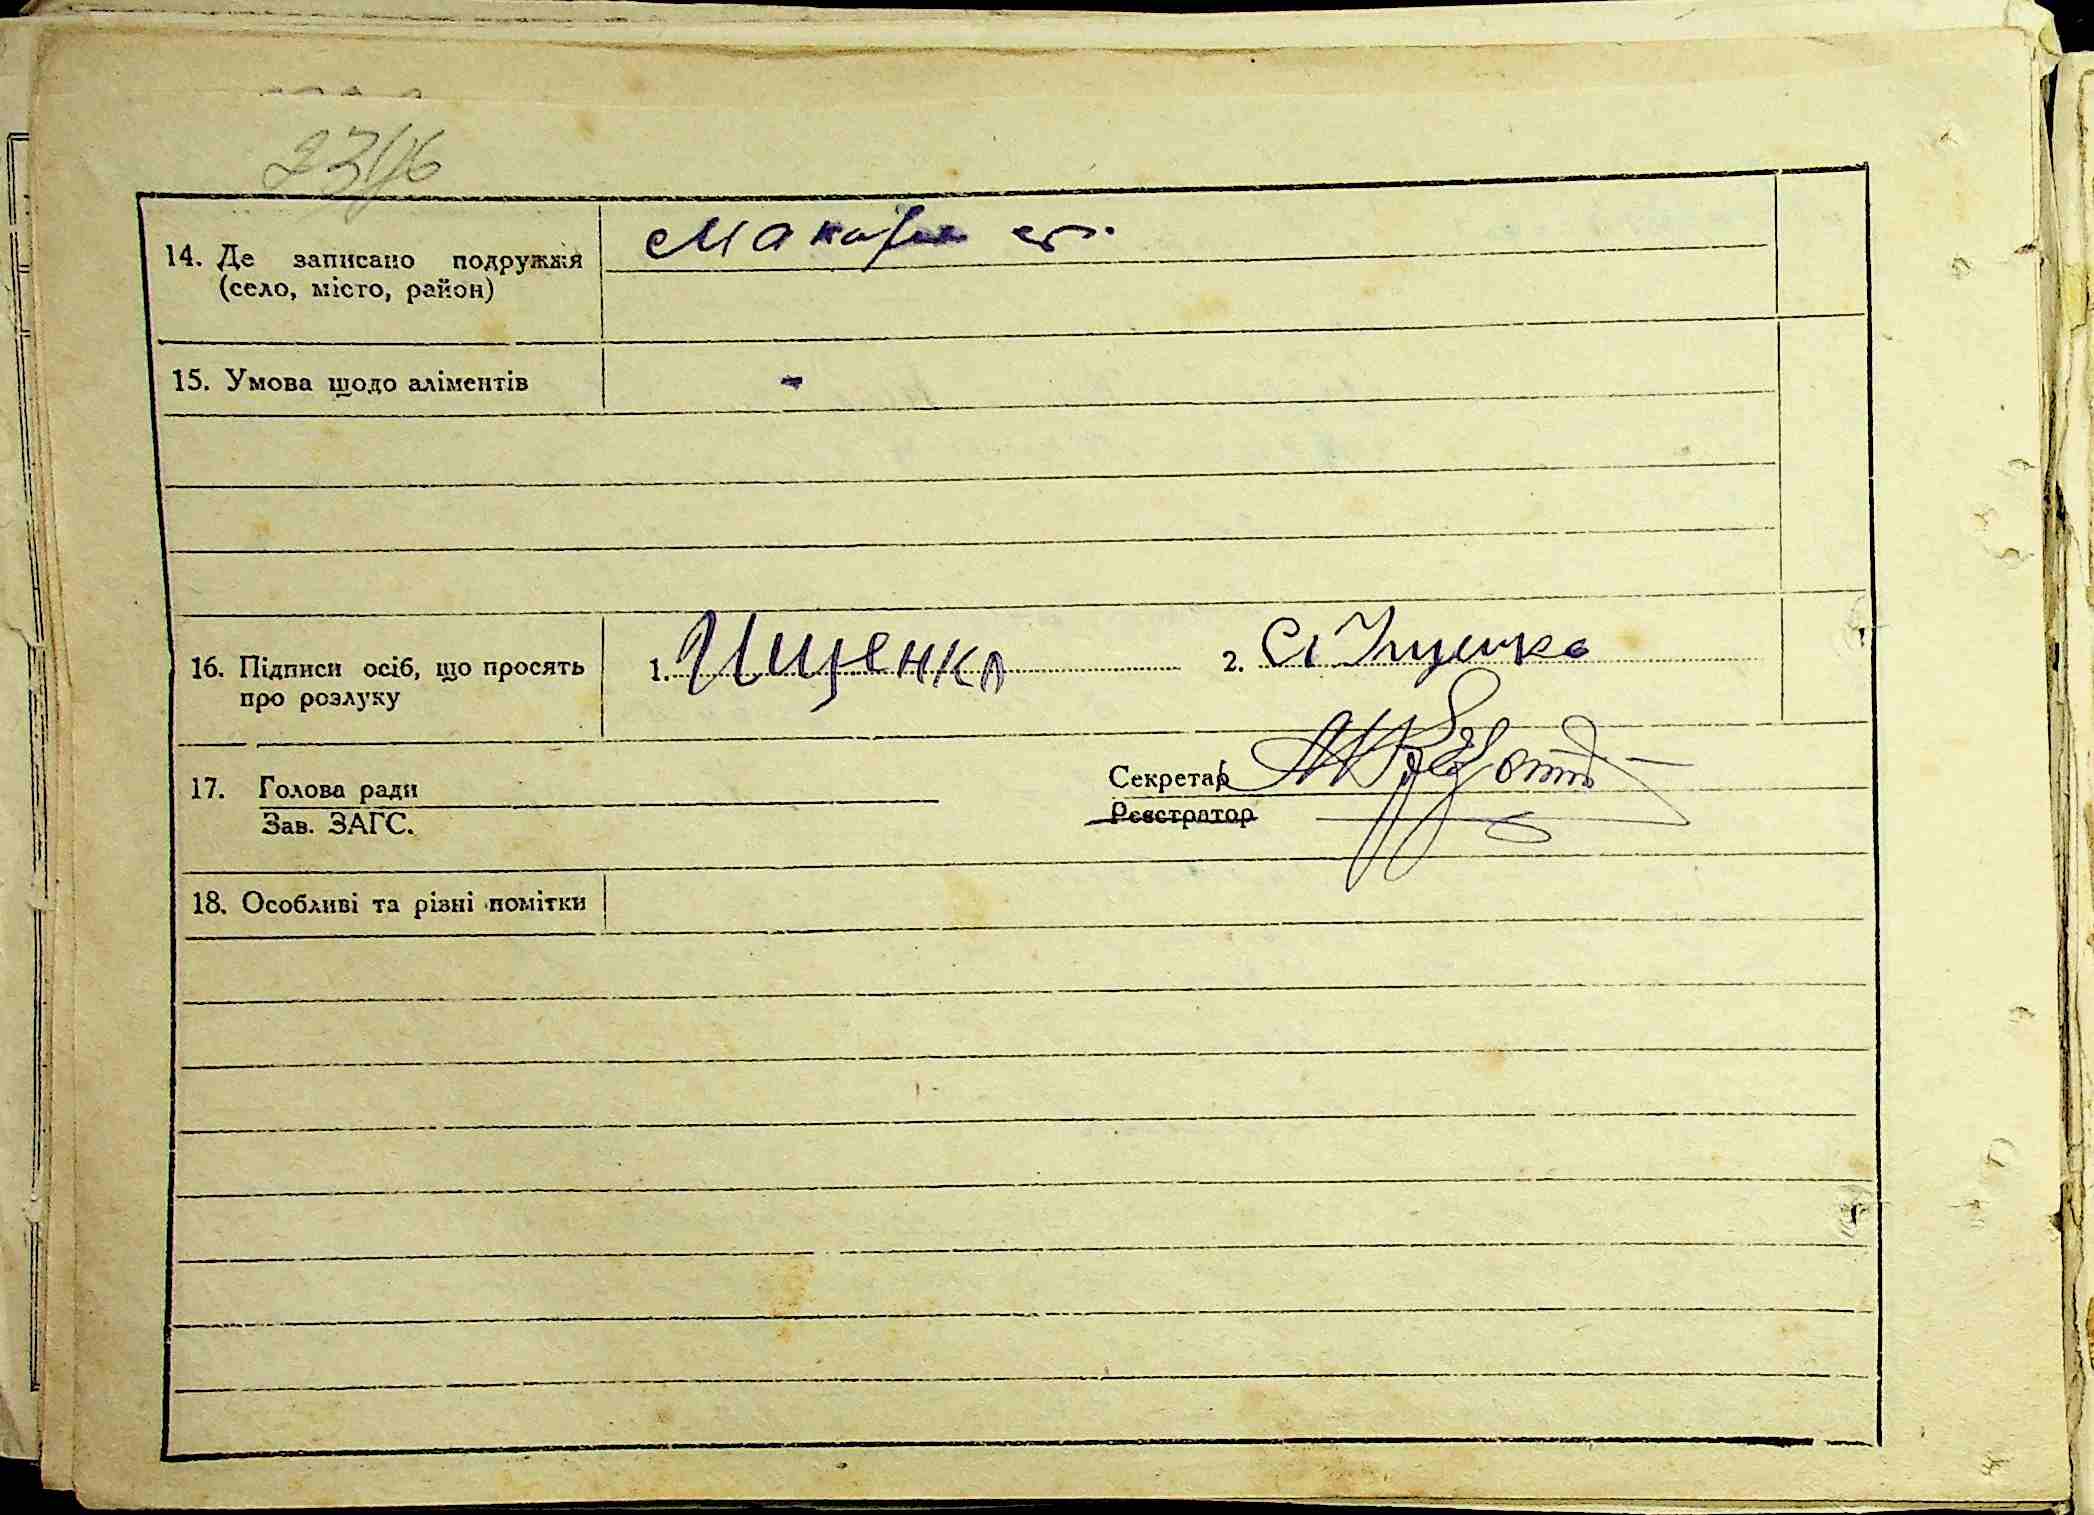 14. Де записано подружжя
(село, місто, район)
15. Умова щодо аліментів -
16. Підписи осіб, що просять
про розлуку
1. Ищенко 2. Іщенко
17. Голова ради Секретар
Зав. ЗАГС. Реєстратор
18. Особливі та різні помітки